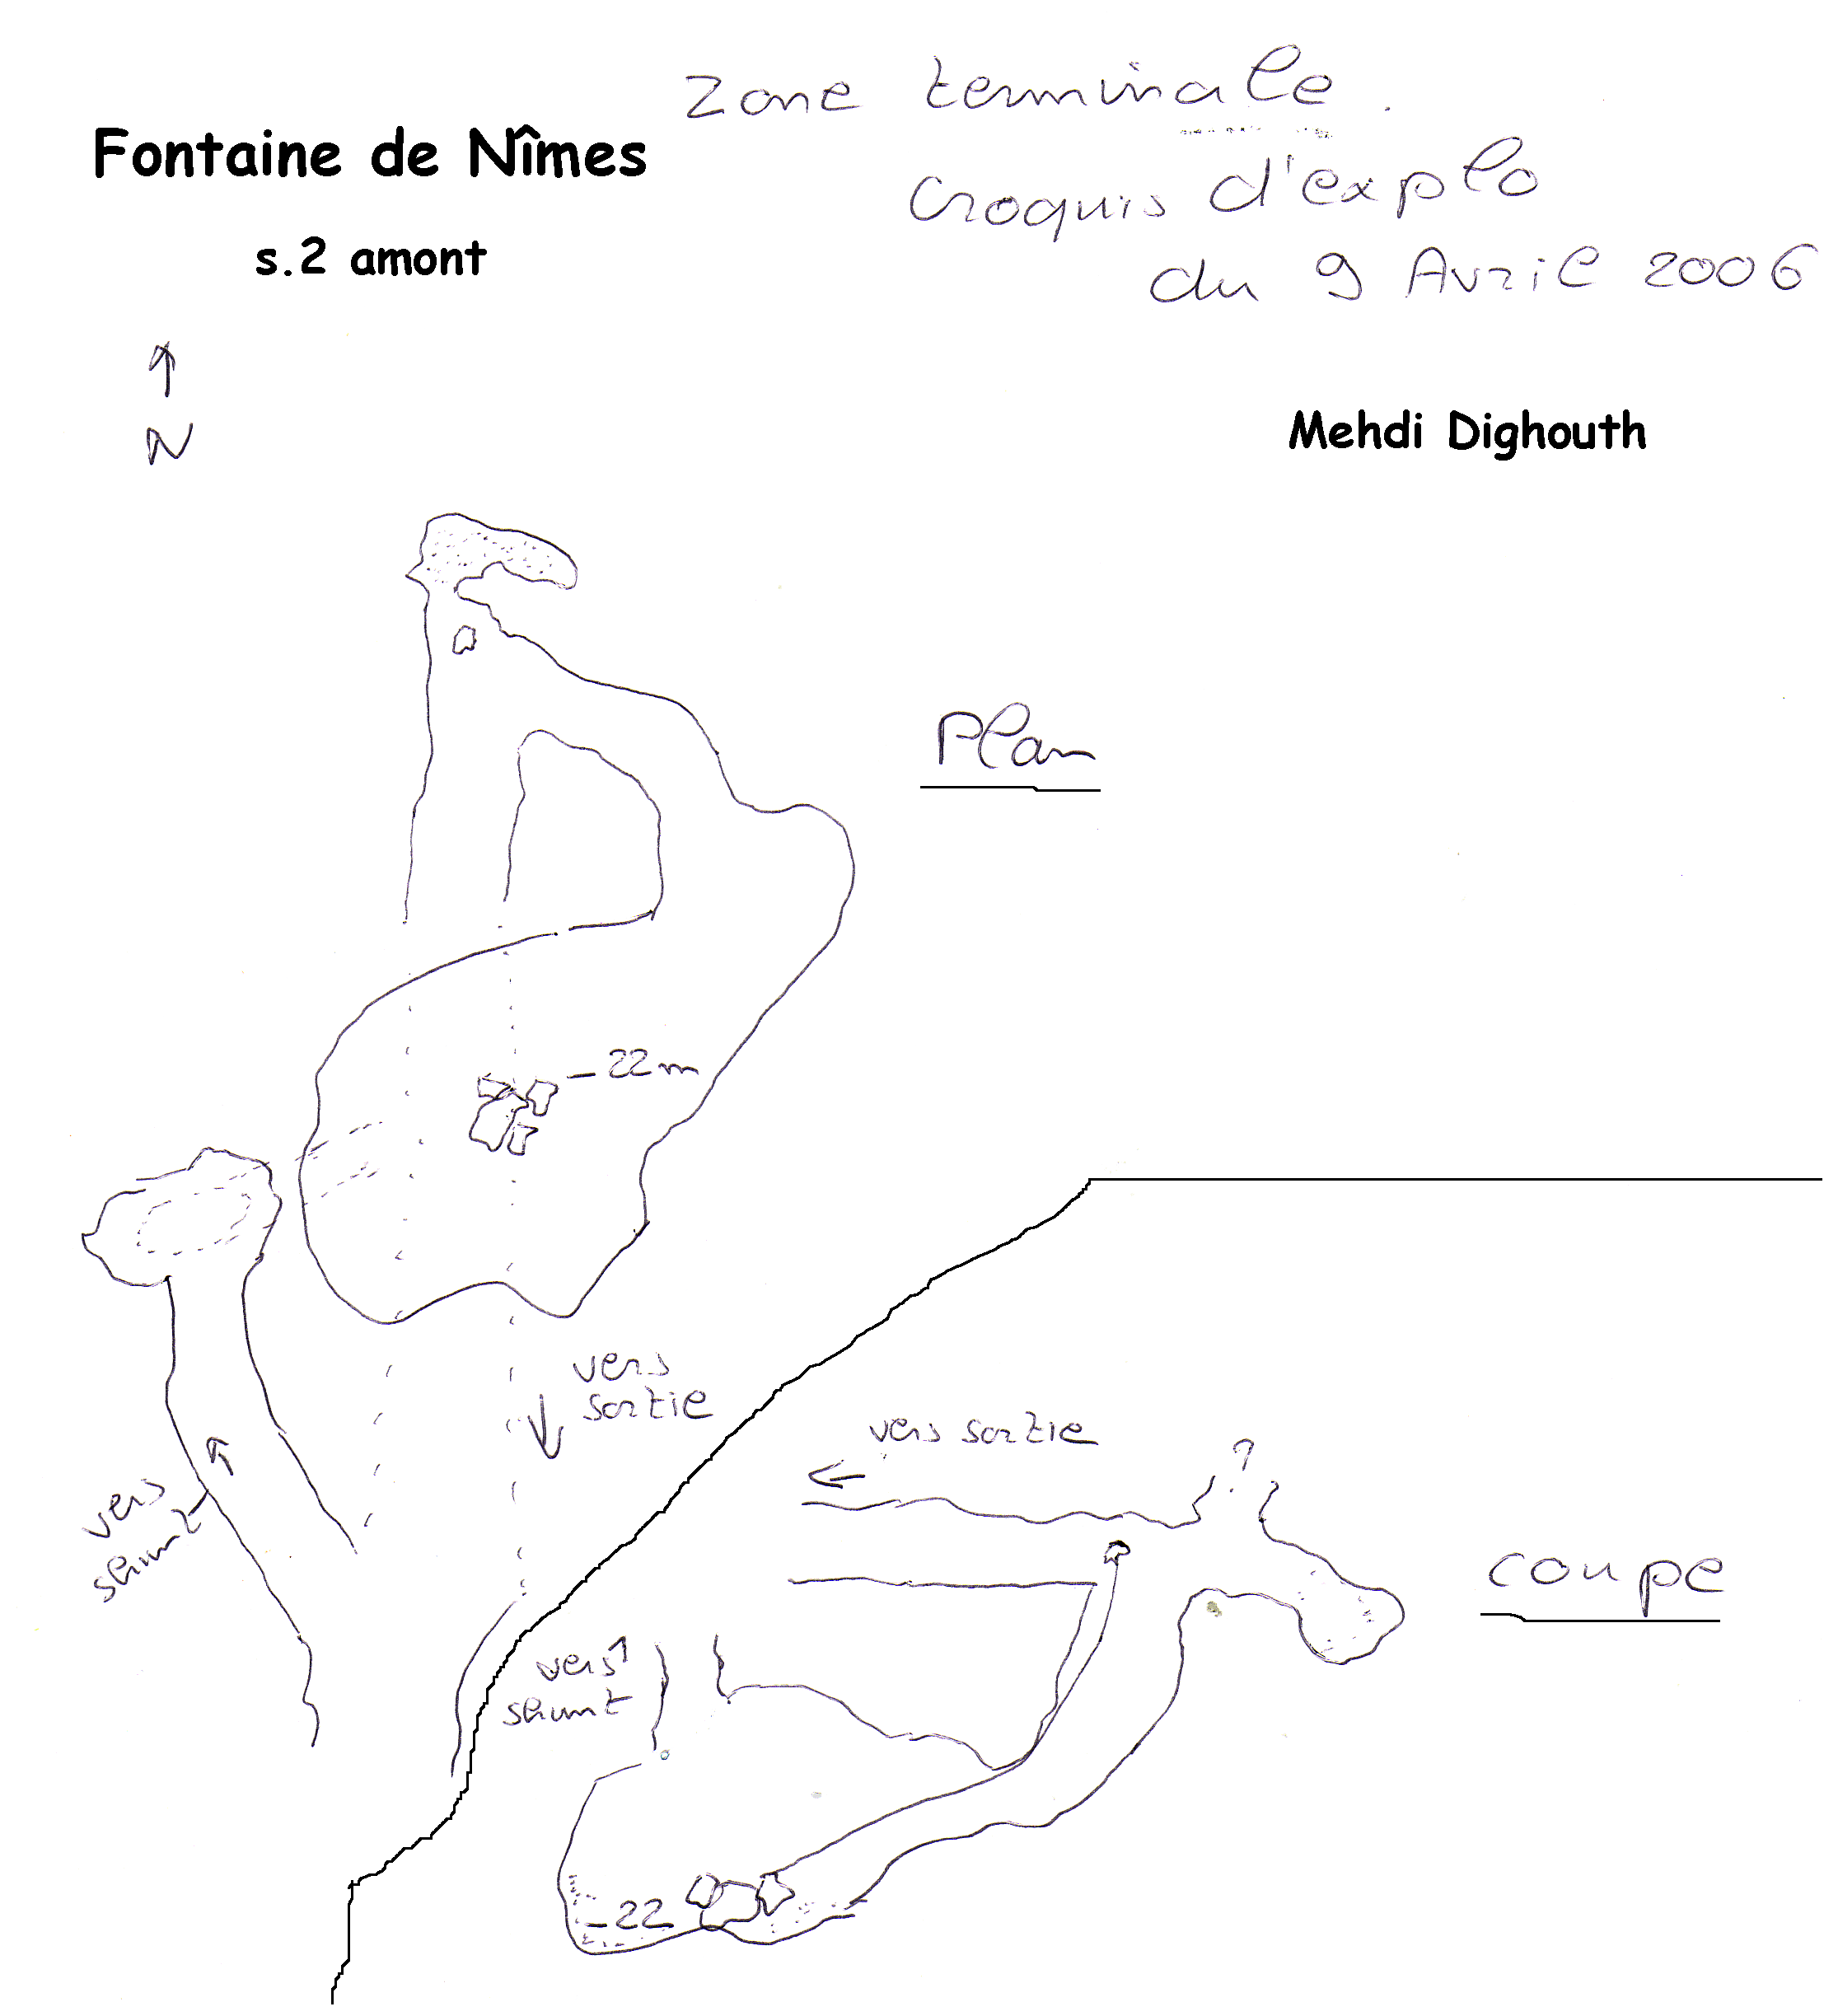 zone terminale.
Fontaine de Nîmes
croquis d'explo
s.2 amont
du 9 Avril 2006
N
Mehdi Dighouth
Plan
-22m
vers
sortie
vers
shunt
vers sortie
?
coupe
vers
shunt
-22